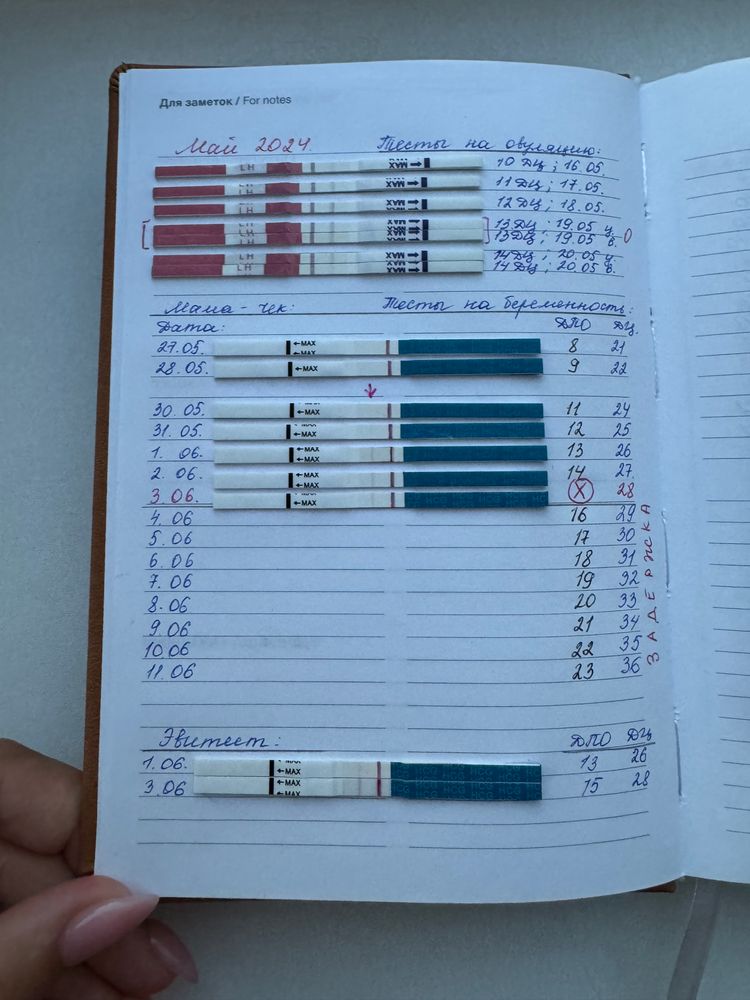 Для заметок / For notes
Май 2024. Тесты на овуляцию:
LH MAX 10 ДЦ; 16.05.
LH MAX 11 ДЦ; 17.05.
LH MAX 12 ДЦ; 18.05.
LH MAX 13 ДЦ; 19.05 у. О
13 ДЦ; 19.05 в.
14 ДЦ; 20.05 у.
LH MAX 14 ДЦ; 20.05 в.
Мама-чек: Тесты на беременность:
Дата: ДПО ДЦ.
27.05. ←MAX 8 21
28.05. ←MAX 9 22
30.05. ←MAX 11 24
31.05. ←MAX 12 25
1. 06. ←MAX 13 26
2. 06. ←MAX 14 27.
3. 06. ←MAX X 28
4. 06 16 29
5. 06 17 30
6. 06 18 31
7. 06 19 32
8. 06 20 33
9. 06 21 34
10.06 22 35
11. 06 23 36
ЗАДЕРЖКА
Эвитест: ДПО ДЦ
1.06. ←MAX 13 26
3.06 ←MAX 15 28